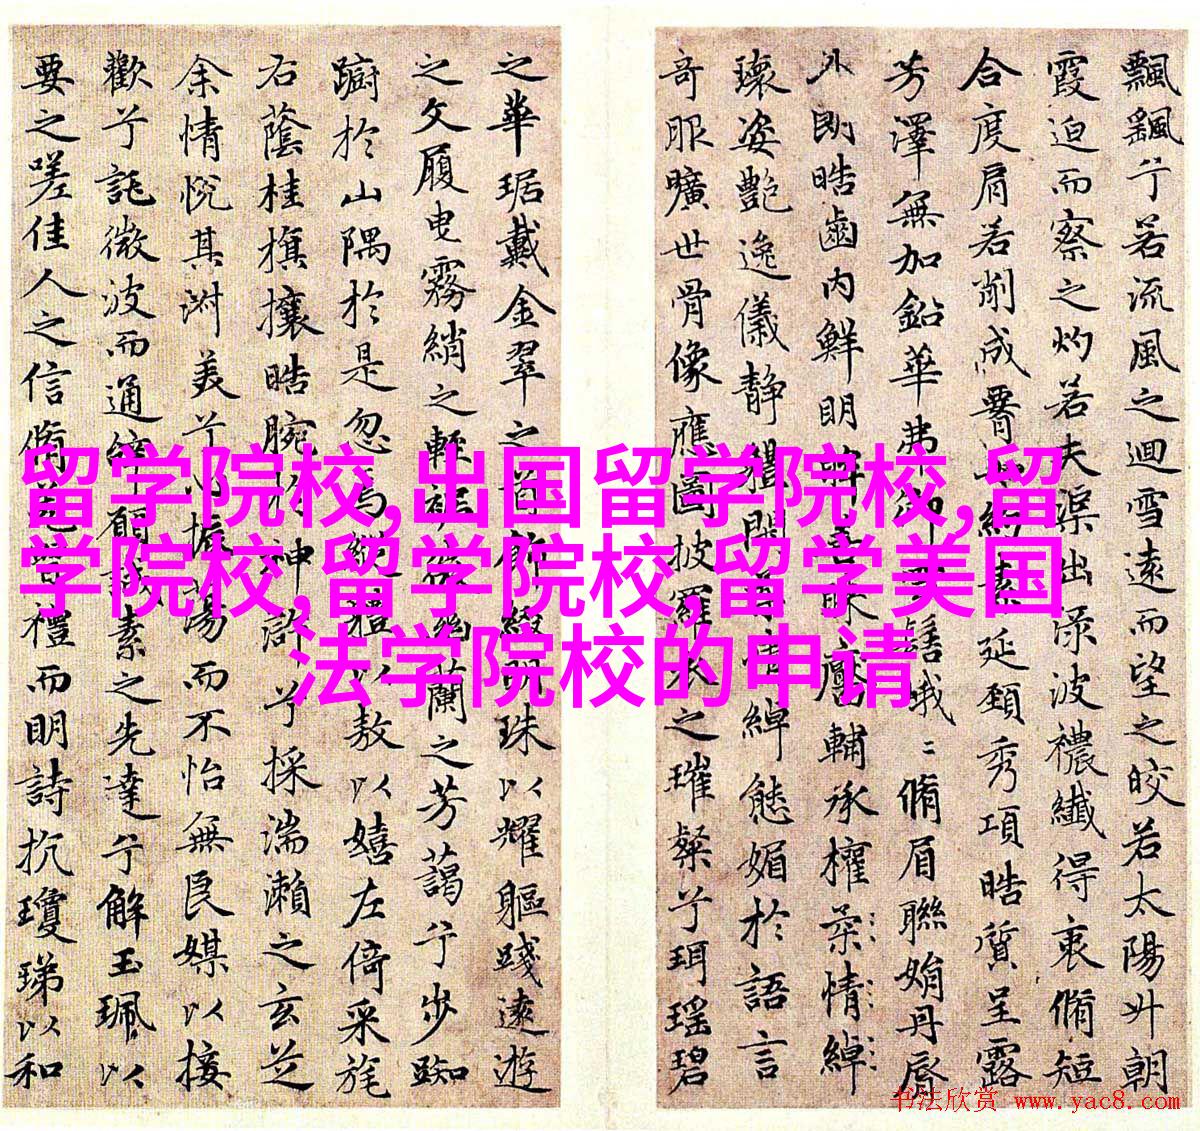 飄飖兮若流風之迴雪遠而望之皎若太陽升朝
霞迫而察之灼若夫渠出渌波禯纖得衷脩短
合度肩若削成署素延頚秀項皓質呈露
芳澤無加鉛華弗脩眉聯娟丹唇
外朗皓齒內鮮明眸靨輔承權柔情綽
瓌姿艶逸儀靜體閑柔情綽態媚於語言
奇服曠世骨像應圖披羅衣之璀粲兮珥瑶碧
之華琚戴金翠之首飾綴明珠以耀軀踐遠遊
之文履曳霧綃之輕裾微幽蘭之芳藹兮步踟
蹰於山隅於是忽焉縱體以敖以嬉左倚采旄
右蔭桂旗攘皓腕於神滸兮採湍瀨之玄芝
余情悅其淑美兮心振蕩而不怡無良媒以接
歡兮託微波而通辭願誠素之先達兮解玉珮以
要之嗟佳人之信脩羌習禮而明詩抗瓊珶以和
留学院校,出国留学院校,留
学院校,留学院校,留学美国
法学院校的申请
书法欣赏 www.yac8.com